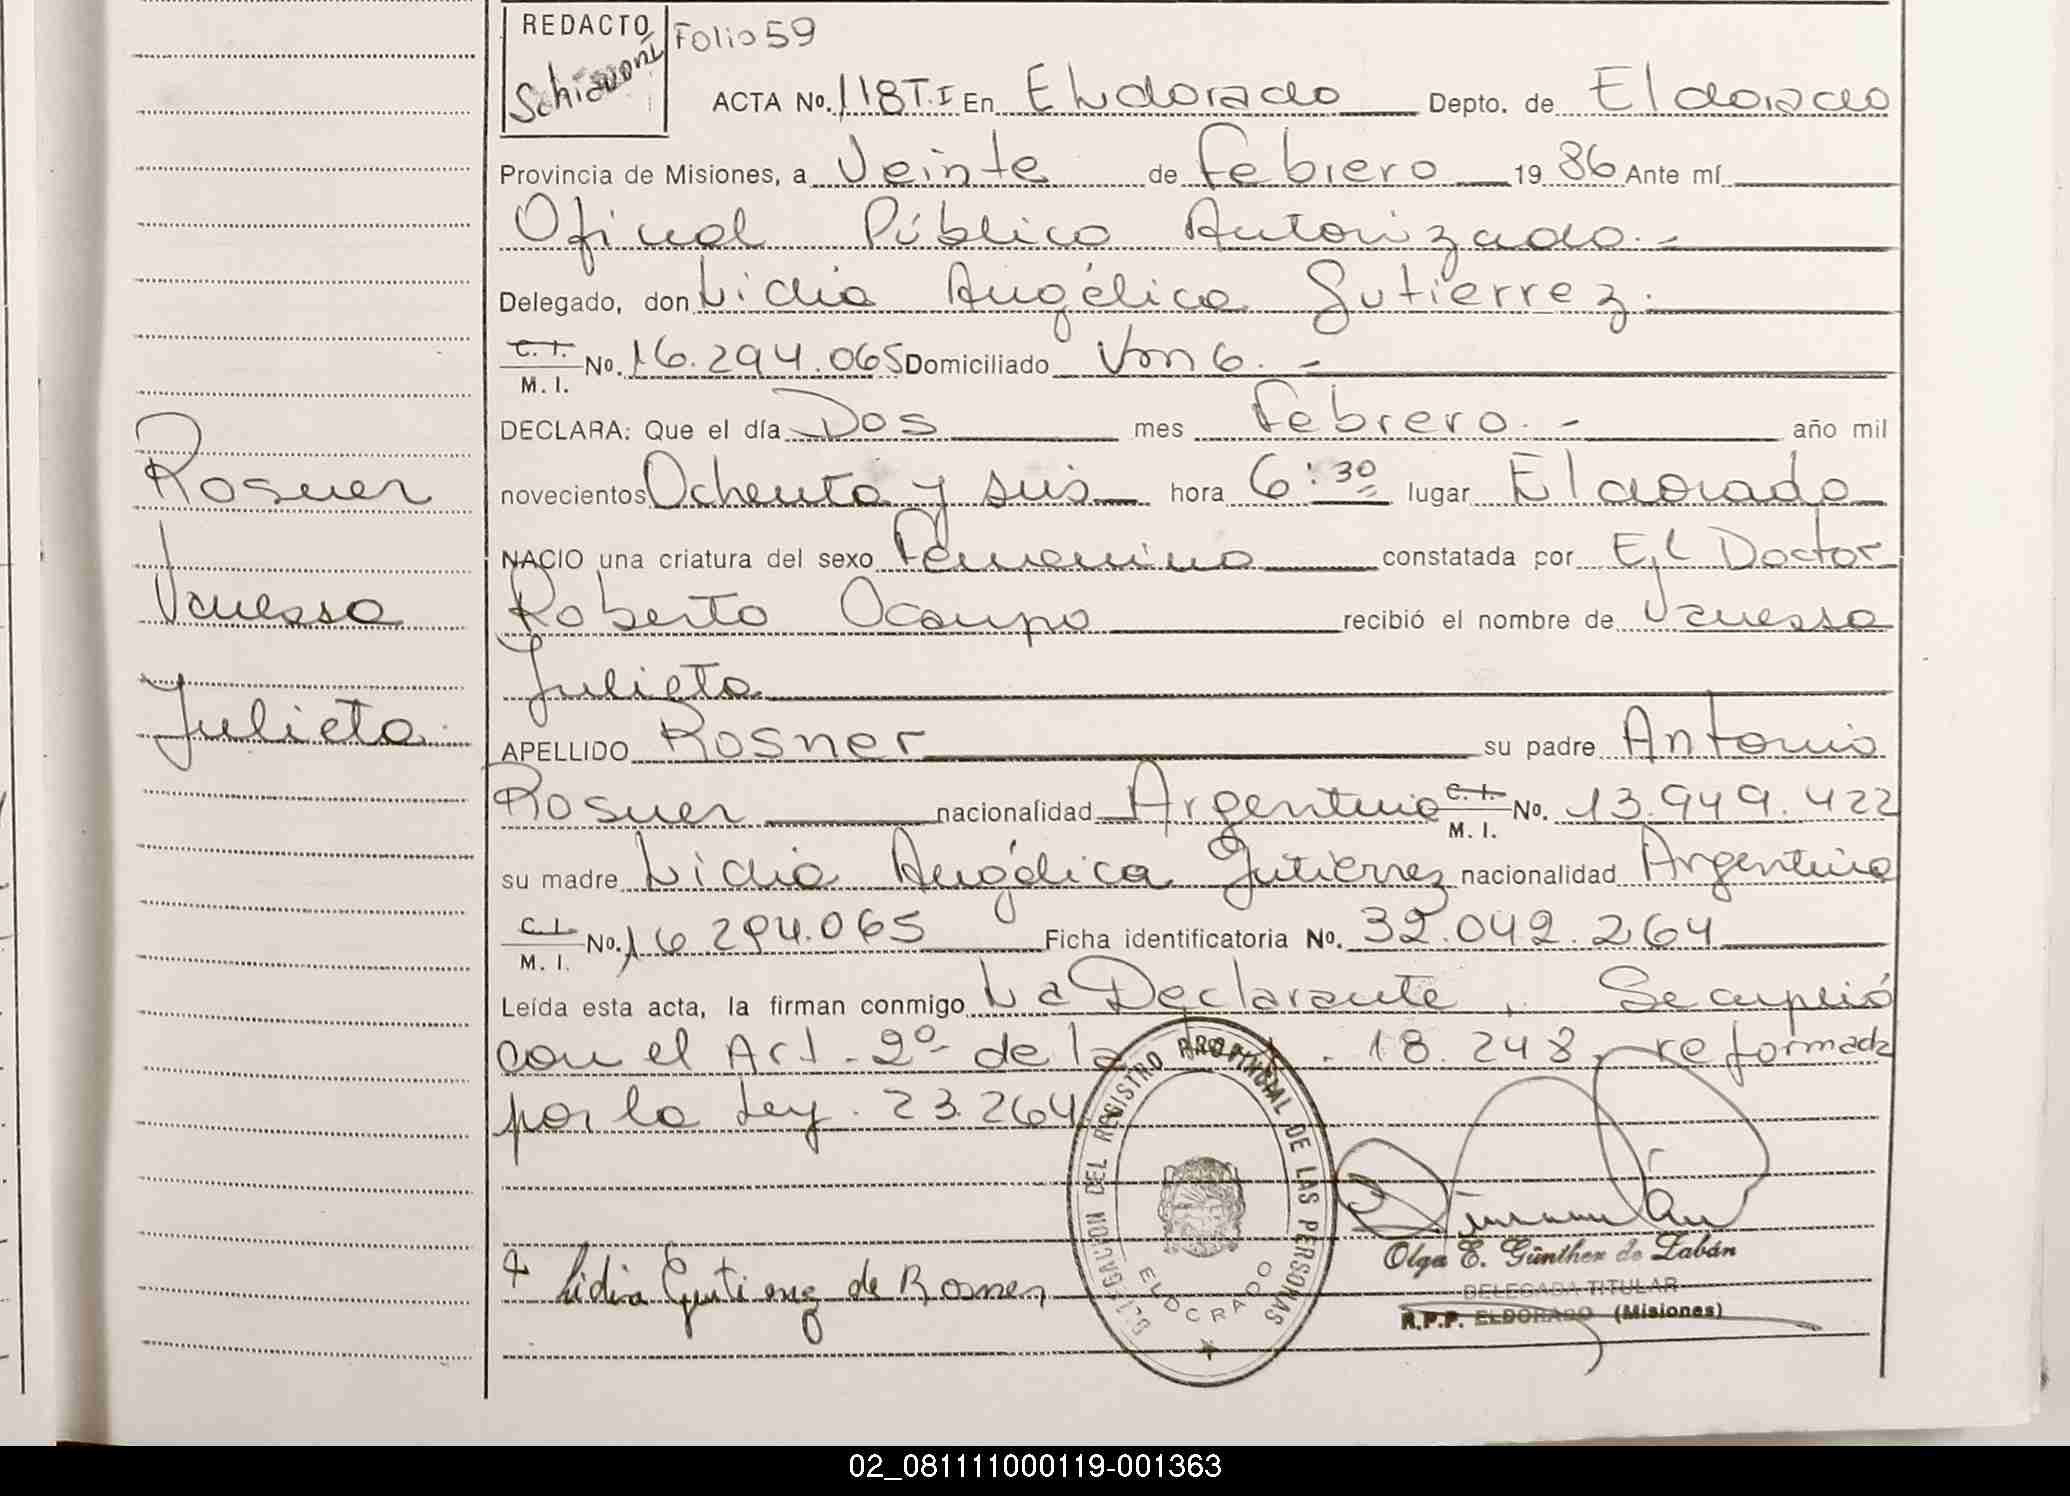 REDACTO
Schiavoni
Folio 59
ACTA No. 118 T.I En Eldorado Depto. de Eldorado
Provincia de Misiones, a Veinte de Febrero 19 86 Ante mí
Oficial Público Autorizado.-
Delegado, don Lidia Angélica Gutierrez.
C. I. M. I. No. 16.294.065 Domiciliado Km 6. -
DECLARA: Que el día Dos mes Febrero. - año mil
novecientos Ochenta y seis hora 6:30 lugar Eldorado
Rosner
NACIO una criatura del sexo Femenino constatada por El Doctor
Vanessa
Roberto Ocampo recibió el nombre de Vanessa
Julieta
Julieta.
APELLIDO Rosner su padre Antonio
Rosner nacionalidad Argentina C. I. M. I. No. 13.949.422
su madre Lidia Angélica Gutierrez nacionalidad Argentina
C. I. M. I. No. 16.294.065 Ficha identificatoria No. 32.042.264
Leída esta acta, la firman conmigo La Declarante, Se cumplió
con el Art. 2º de la . 18.248, reformada
por la Ley. 23.264
DELEGACION DEL REGISTRO PROVINCIAL DE LAS PERSONAS
ELDORADO
Lidia Gutierrez de Rosner
Olga E. Günther de Zabán
DELEGADA TITULAR
R.P.P. ELDORADO (Misiones)
02_081111000119-001363